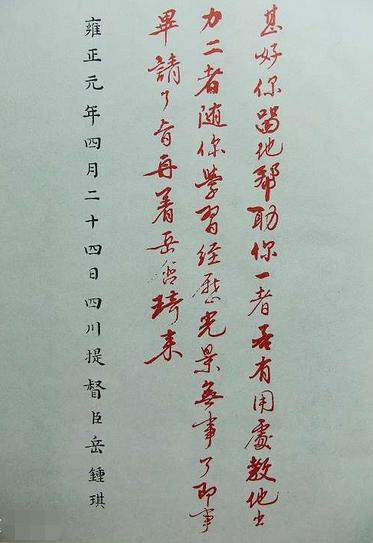 甚好你留他幫助你一者若有用處教他出
力二者随你學習經歷光景無事了即事
畢請了旨再着岳含琦来
雍正元年四月二十四日四川提督臣岳鍾琪